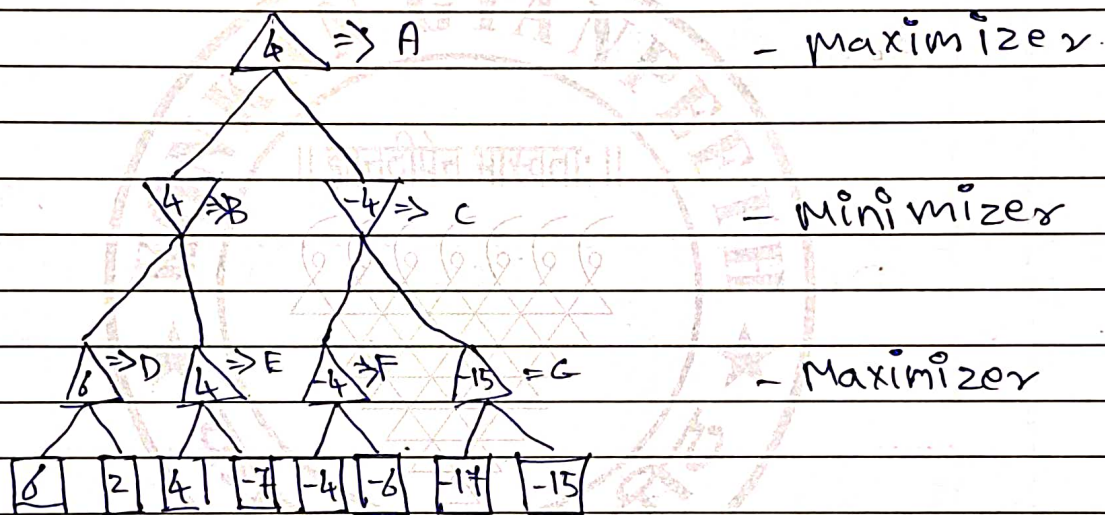 4 => A - Maximizer.
4 => B -4 => C - Minimizer
6 => D 4 => E -4 => F -15 = G - Maximizer
6 2 4 -7 -4 -6 -17 -15